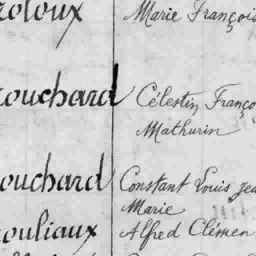 roloux Marie François
rouchard Célestin, Franço
Mathurin
ouchard Constant Louis Jea
Marie
ouliaux Alfred Clémen